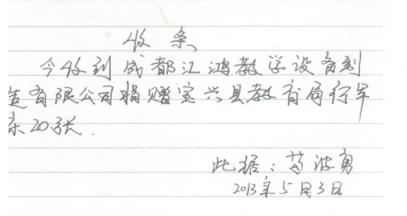 收条
今收到成都汇鸿教学设备制
造有限公司捐赠宝兴县教育局行军
床20张.
此据: 苟波勇
2013年5月3日